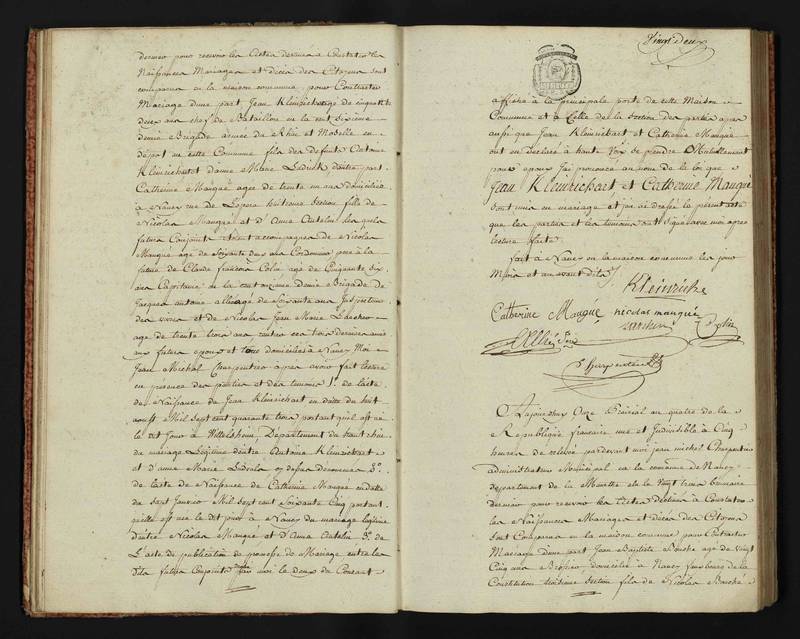 dernier pour recevoir les actes destinés à Constater les
Naissances Mariages et décès des Citoyens sont
comparus en la maison commune, pour Contracter
Mariage d'une part Jean Kleinrichart agé de cinquante
deux ans chef de Bataillon en la cent sixieme
demie Brigade armée du Rhin et Moselle en
dépot en cette Commune fils des defunts Antoine
Kleinrichart et d'Anne Marie d'autre part
Catherine Maugué age de trente un ans domiciliée
à Nancy rue de huitieme section fille de
Nicolas Maugué et d'Anne Antelin les quels
futurs Conjoints etoient accompagnés de Nicolas
Maugué age de Soixante deux ans Cordonnier pere à la
future de Claude francois Colin age de Cinquante six
ans Capitaine en la cent onzieme demie Brigade de
Jacques antoine age de Soixante ans Inspecteur
des vivres et de Nicolas Jean Marie
age de trente trois ans rentier ces trois derniers amis
aux futurs epoux et tous domiciliés à Nancy Moi
Jean Michel Charpentier après avoir fait lecture
en presence des parties et des temoins 1º de l'acte
de Naissance de Jean Kleinrichart en datte du huit
aoust Mil sept cent quarante trois portant qu'il est né
le dit jour à Wittelsheim, Departement du haut rhin
du mariage Légitime d'entre Antoine Kleinrichart
et d'anne Marie 2º
de l'acte de Naissance de Catherine Maugué en datte
du sept Janvier Mil sept cent Soixante Cinq portant
qu'elle est née le dit jour à Nancy du mariage légitime
d'entre Nicolas Maugué et d'Anne Antelin 3º de
L'acte de publication de promesse de Mariage entre les
dits futurs Conjoints par moi le deux du Courant
Vingt deux
affiché à la principale porte de cette Maison
Commune et à Celle de la Section des parties après
aussi que Jean Kleinrichart et Catherine Maugué
ont eu declaré à haute voix se prendre Mutuellement
pour epoux J'ai prononcé au nom de la loi que
Jean Kleinrichart et Catherine Maugué
sont unis en mariage et j'ai dressé le présent acte
que les parties et les temoins ont signé avec moi après
lecture faite
fait à Nancy en la maison commune les jour
Mois et an avant dits
Kleinriche
Catherine Maugué nicolas maugué
Colin
Charpentier
Aujourd'huy Onze Prairial an quatre de la
Republique francaise une et Indivisible à Cinq
heures de relevée pardevant moi jean michel Charpentier
administrateur Municipal en la commune de Nancy
departement de la Meurthe élu le Vingt trois brumaire
dernier pour recevoir les Actes destinés à Constater
les Naissances Mariages et décès des Citoyens
sont Comparus en la maison commune pour Contracter
Mariage d'une part Jean Baptiste Bouché age de vingt
Cinq ans domicilié à Nancy fauxbourg de la
Constitution troisieme section fils de Nicolas Bouché